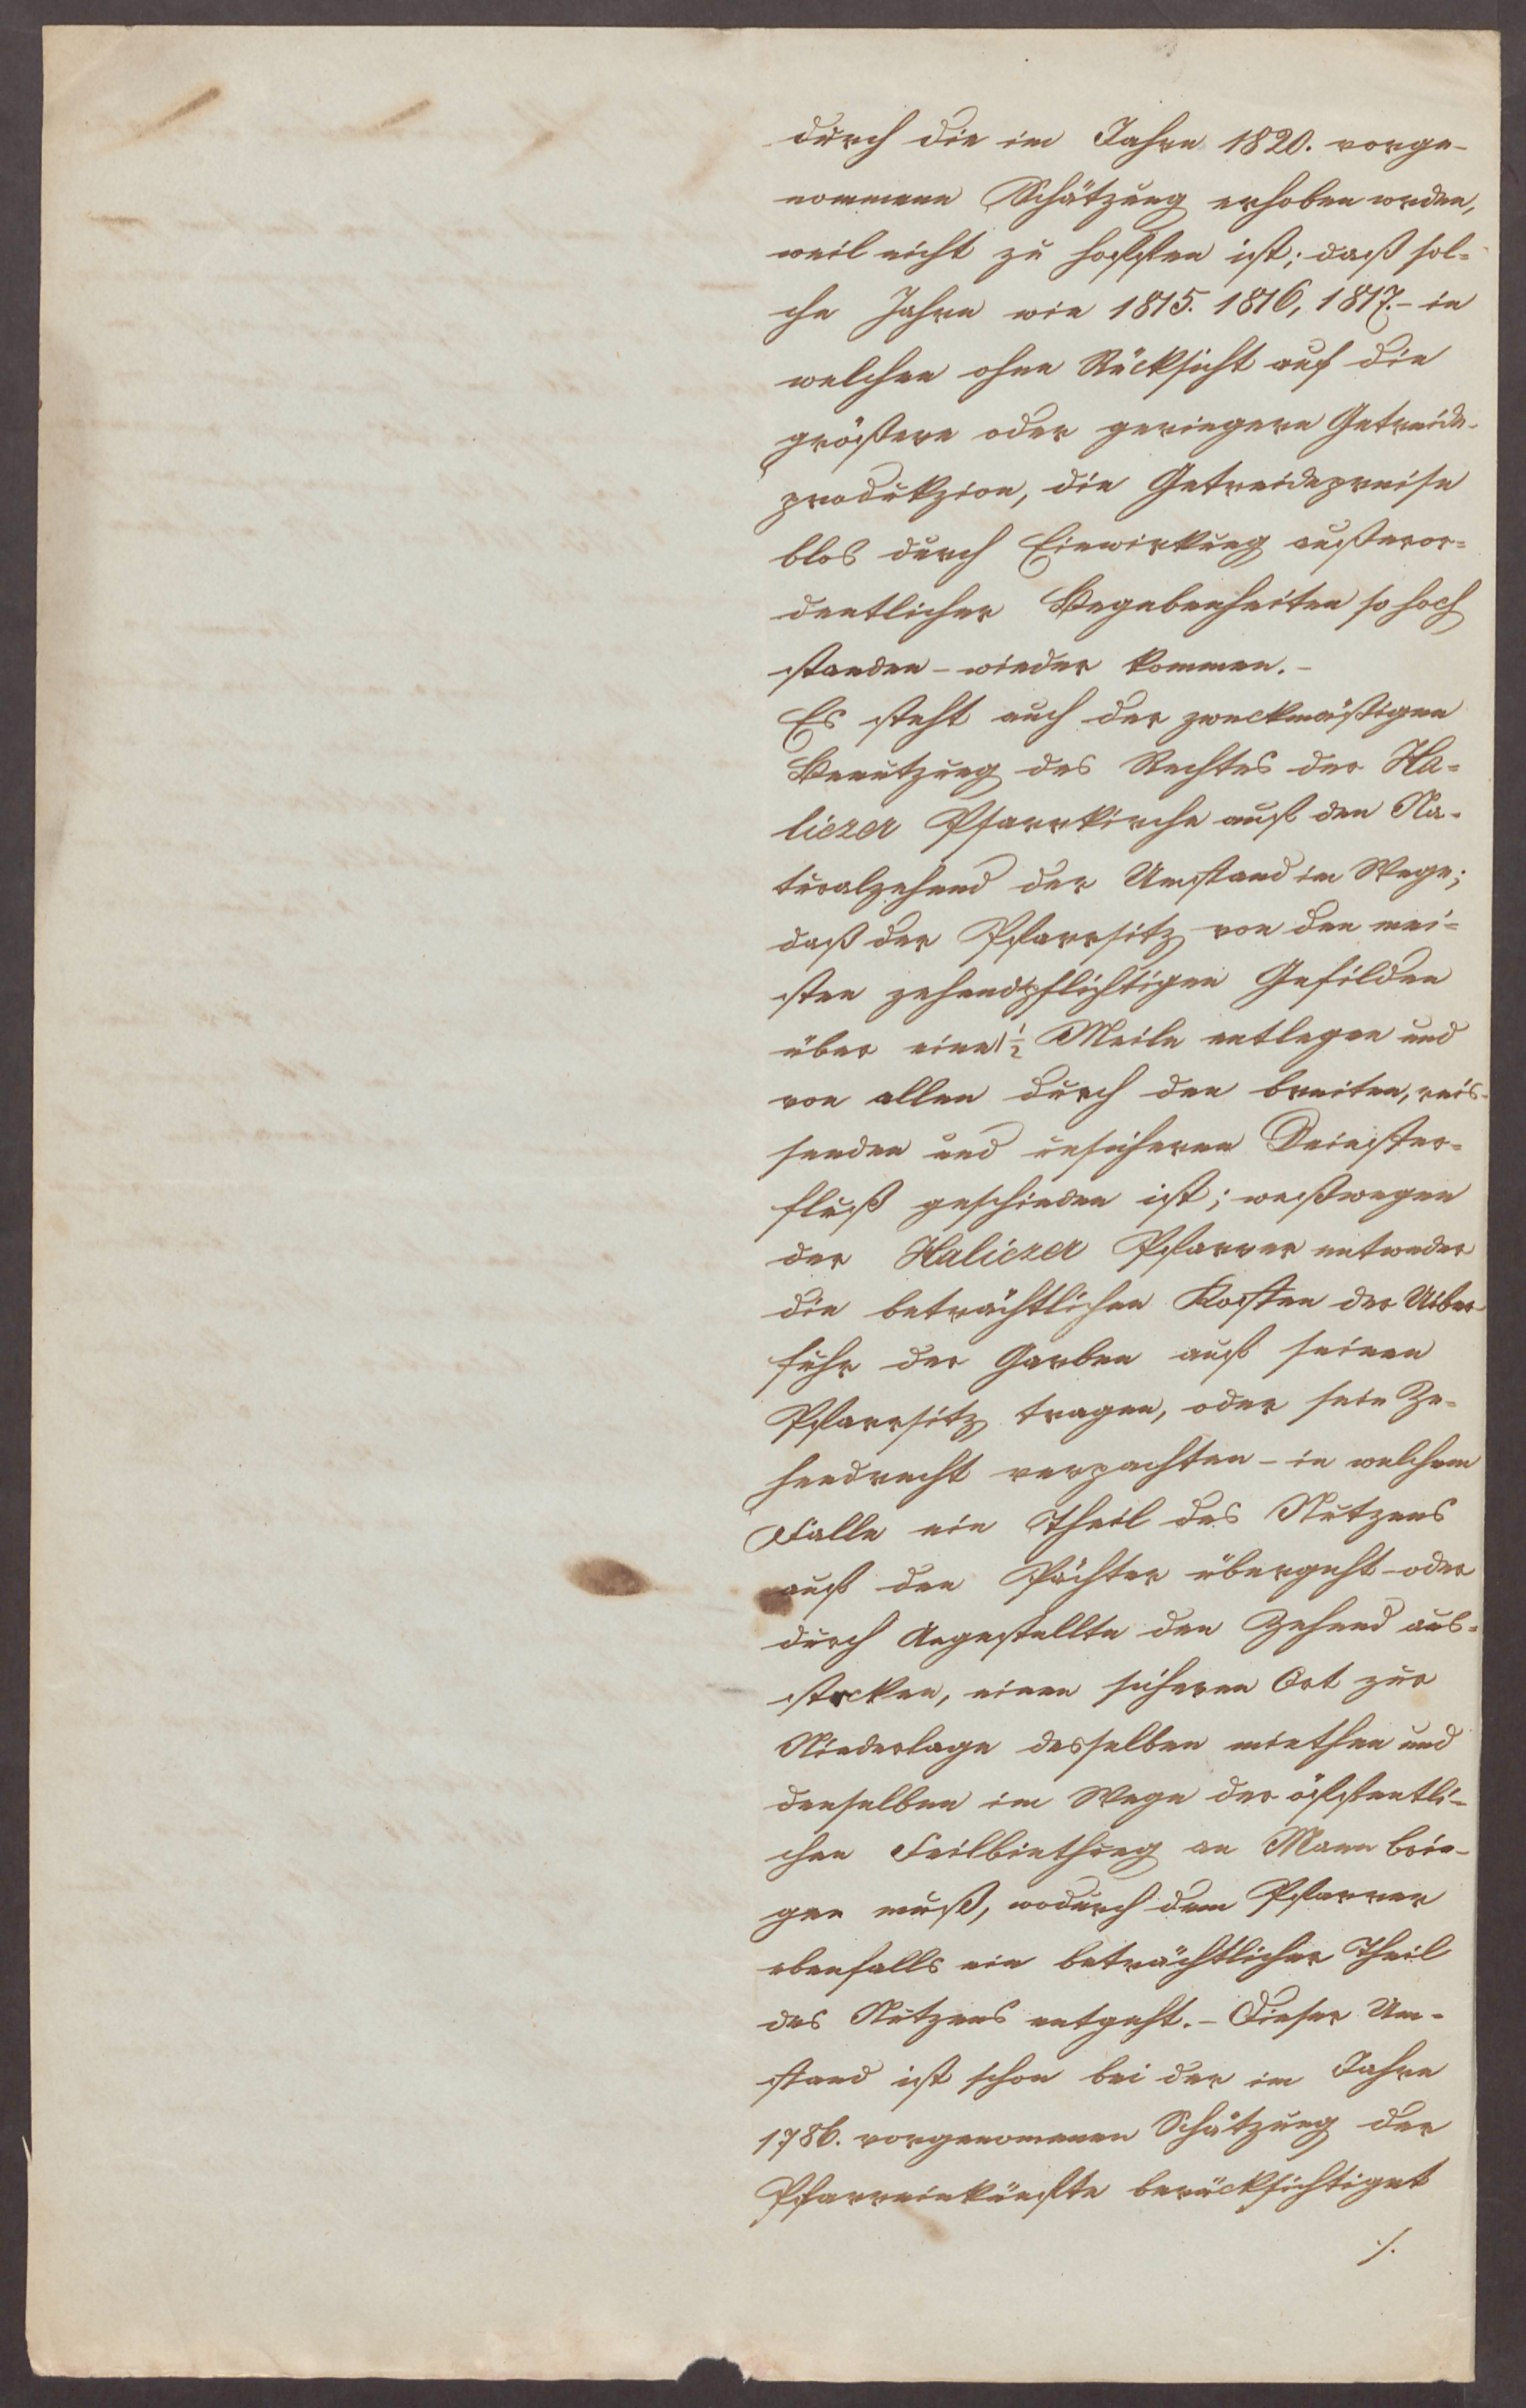 durch die im Jahre 1820. vorge-
nommene Schätzung erhoben worden,
weil nicht zu hoffen ist; daß sol-
che Jahre wie 1815. 1816, 1817.- in
welchen ohne Rücksicht auf die
größere oder geringere Getreide-
produkzion, die Getreidepreise
blos durch Einwirkung außeror-
dentlicher Begebenheiten so hoch
standen - wieder kommen. -
Es steht auch der zweckmäßigen
Benutzung des Rechtes der Ha-
liczer Pfarrkirche auf den Na-
turalzehend der Umstand im Wege;
daß der Pfarrsitz von den mei-
sten zehendpflichtigen Gefilden
über eine 1/2 Meile entlegen und
von allen durch den breiten, reis-
senden und unsicheren Dniester-
fluß geschieden ist; weßwegen
der Haliczer Pfarrer entweder
die beträchtlichen Kosten der Uiber-
fuhr der Garben auf seinen
Pfarrsitz tragen, oder sein Ze-
hendrecht verpachten - in welchem
Falle ein Theil des Nutzens
auf den Pächter übergeht - oder
durch Angestellte den Zehend aus-
stecken, einen sicheren Ort zur
Niederlage desselben miethen und
denselben im Wege der öffentli-
chen Feilbiethung an Mann brin-
gen muß, wodurch dem Pfarrer
ebenfalls ein beträchtlicher Theil
des Nutzens entgeht. - Dieser Um-
stand ist schon bei der im Jahre
1786. vorgenomenen Schätzung der
Pfarreinkünfte berücksichtiget
./.